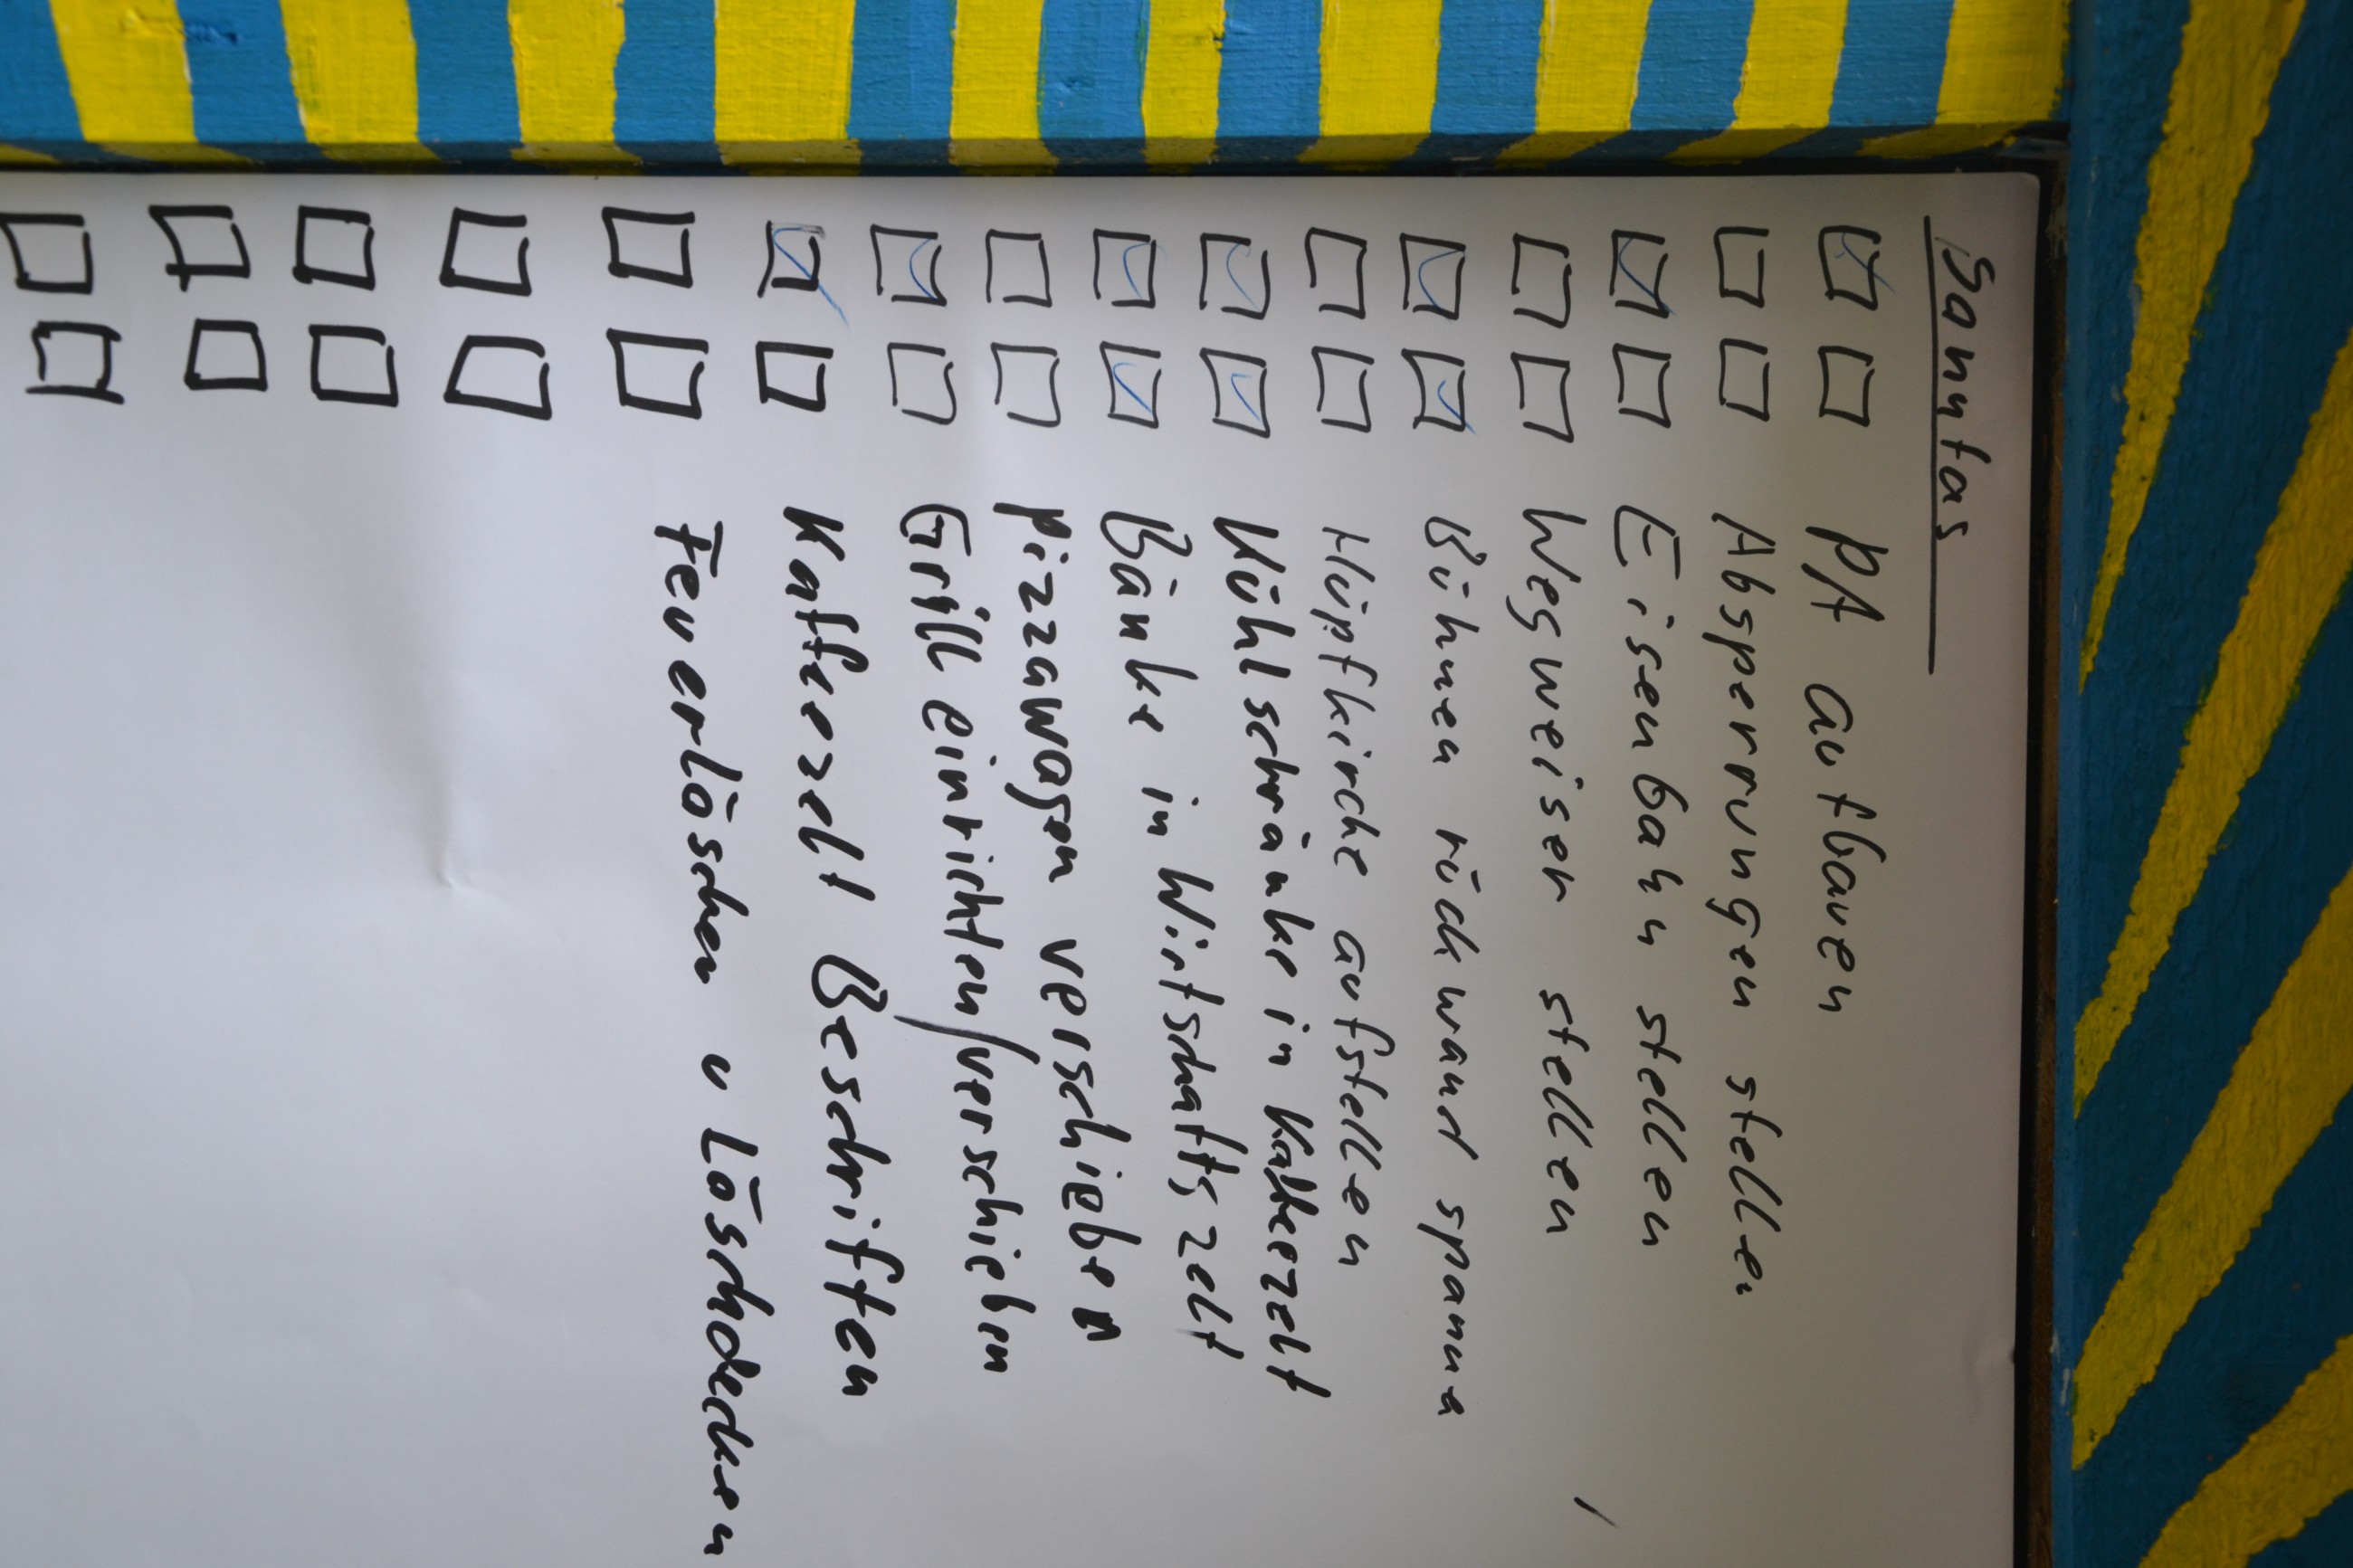 Sanntas
PA aufbauen
Absperrungen stellen
Eisenbahn stellen
Wegweiser stellen
Bühnen rückwand spannen
Hüpfkirche aufstellen
Kühlschränke in Kaffeezelt
Bänke in Wirtschaftszelt
Pizzawagen verschieben
Grill einrichten/verschieben
Kaffeezelt Beschriften
Feuerlöscher u Löschdecken